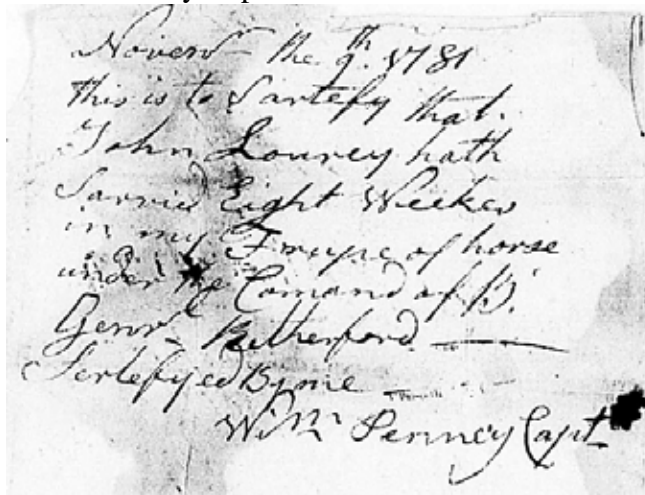 Novemr the 9th 1781
this is to Sartefy that
John Lowrey hath
Sarvied Eight Weekes
in my Troupe of horse
under the Comand of B.
Genrl Rutherford
Sertefyed By me
Willm Penney Capt